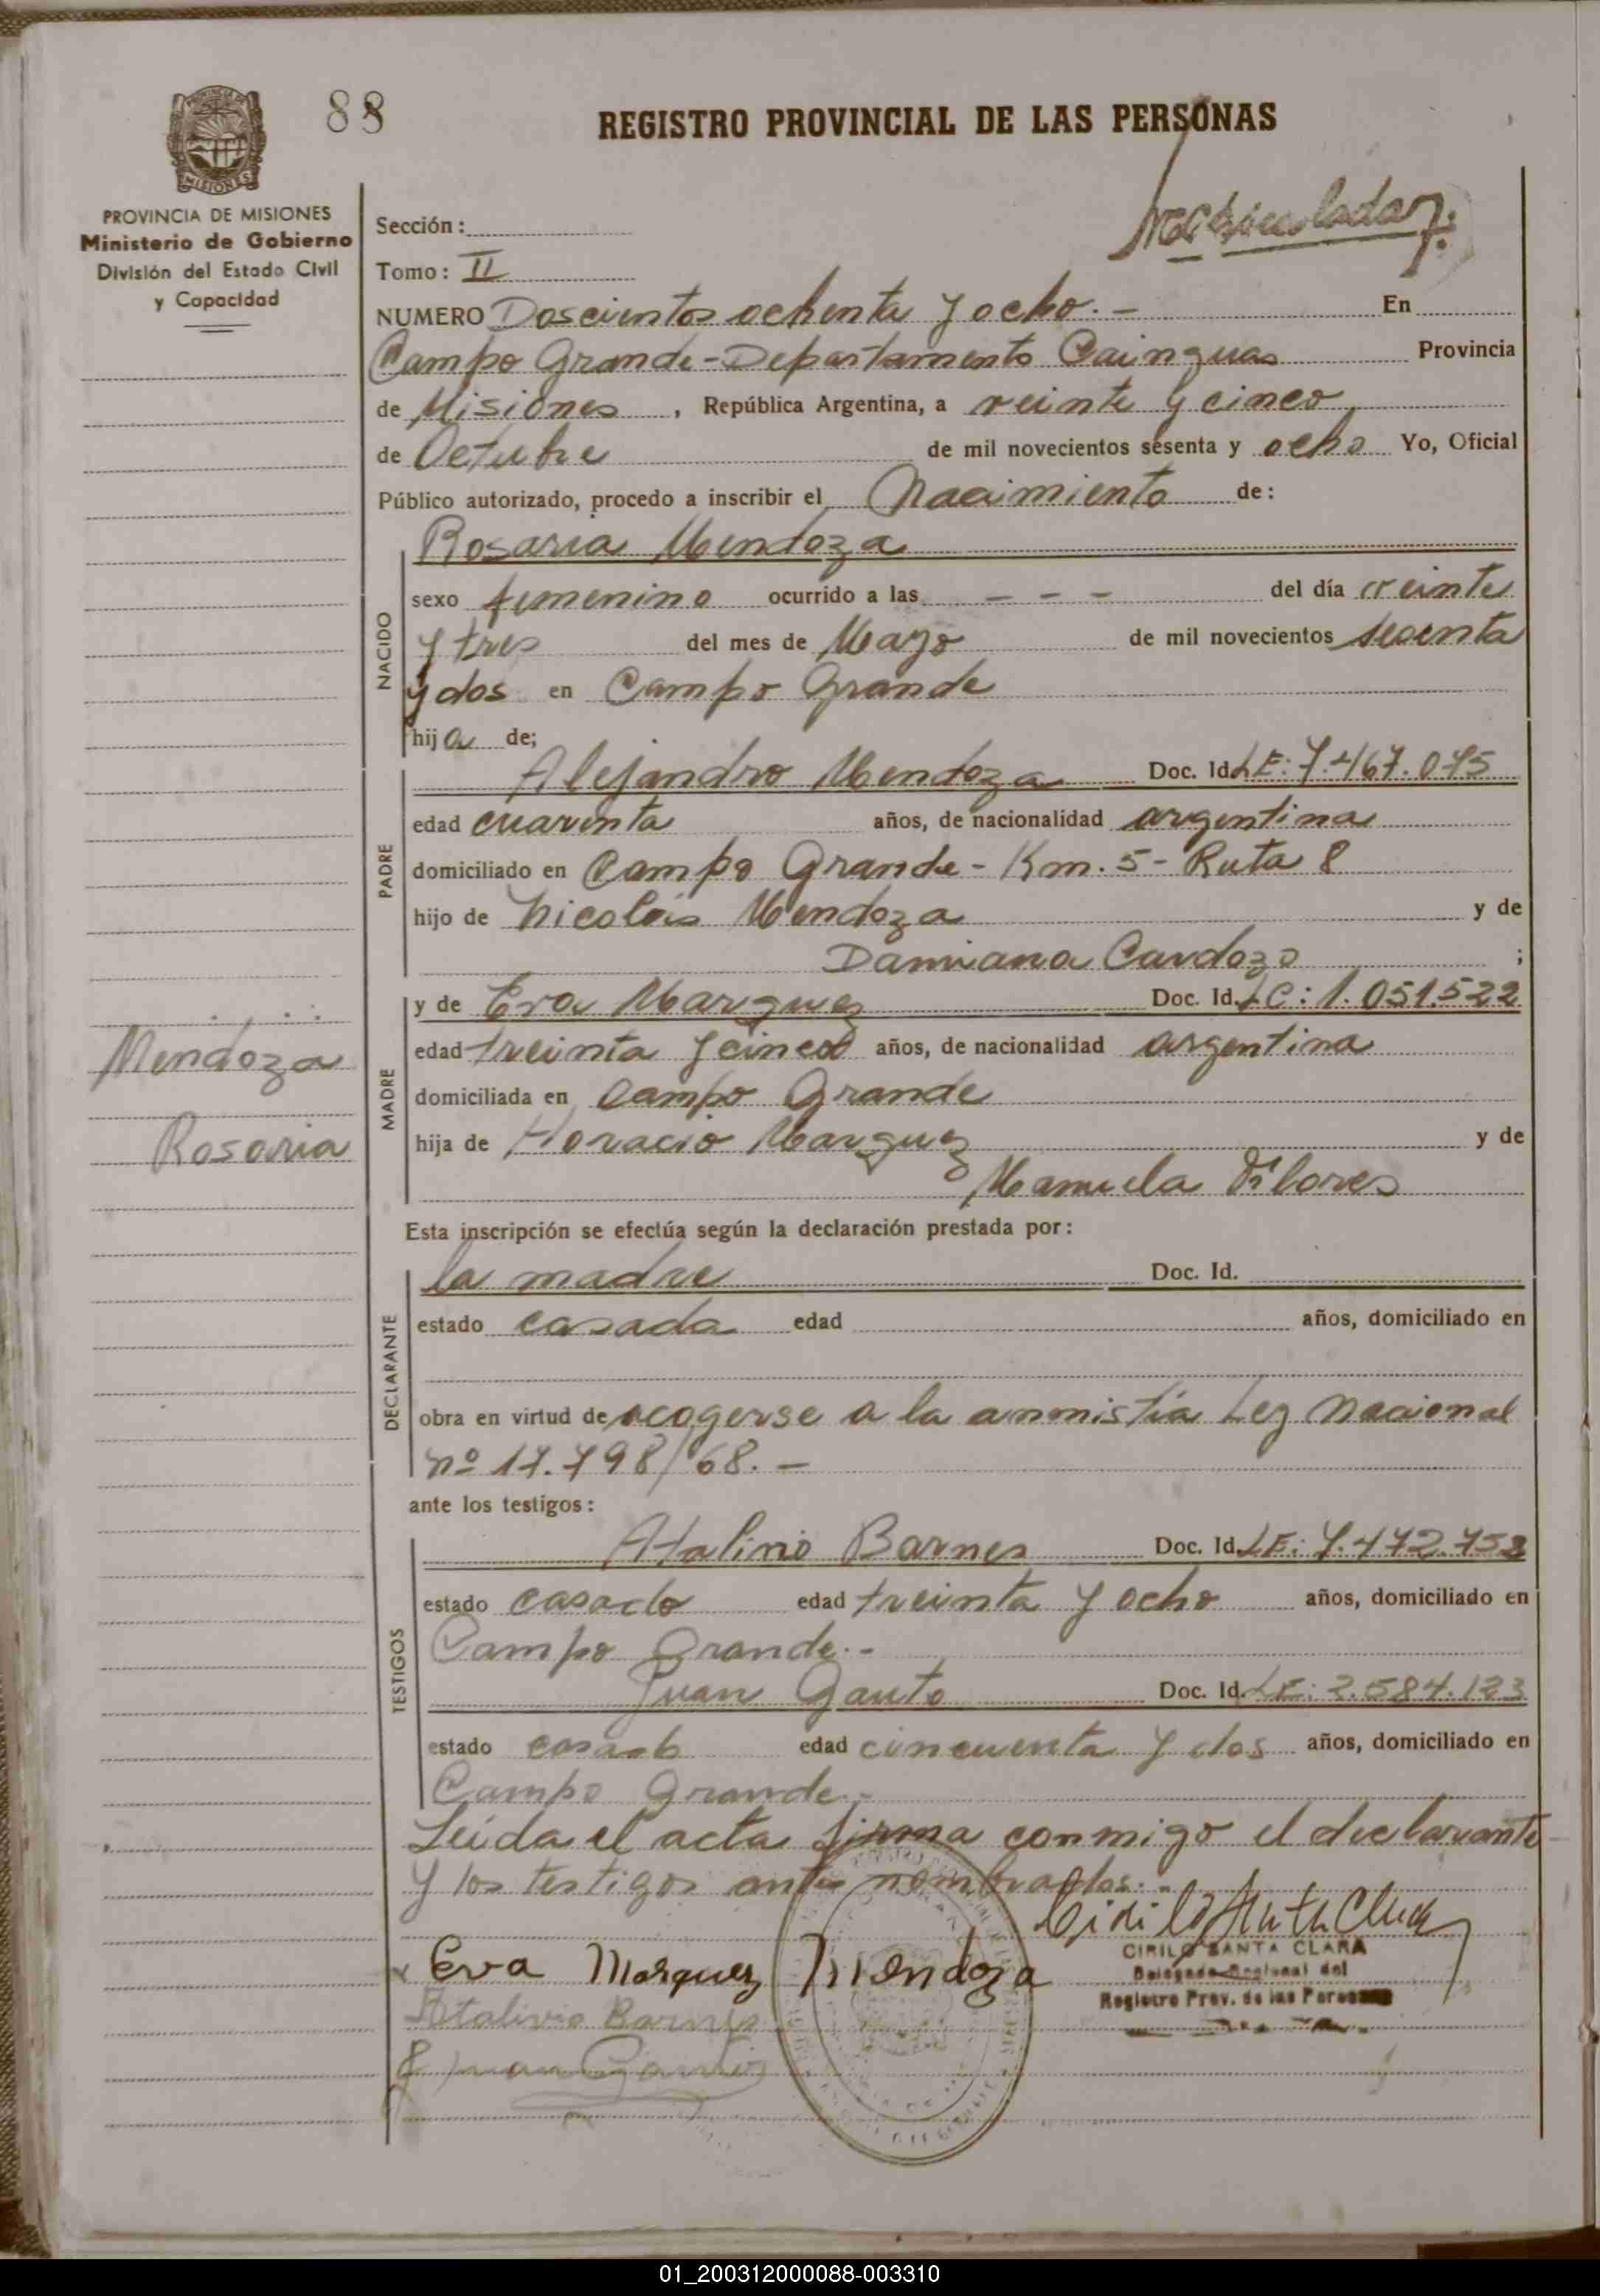 88
REGISTRO PROVINCIAL DE LAS PERSONAS
MISIONES
PROVINCIA DE MISIONES
Ministerio de Gobierno
División del Estado Civil
y Capacidad
Sección:
Tomo: II
NUMERO Doscientos ochenta y ocho.- En
Campo Grande-Departamento Cainguas Provincia
de Misiones, República Argentina, a veinte y cinco
de Octubre de mil novecientos sesenta y ocho Yo, Oficial
Público autorizado, procedo a inscribir el Nacimiento de:
Rosaria Mendoza
NACIDO
sexo femenino ocurrido a las - - - del día veinte
y tres del mes de Mayo de mil novecientos sesenta
y dos en Campo Grande
hija de;
Alejandro Mendoza Doc. Id. LE: 7.467.075
PADRE
edad cuarenta años, de nacionalidad argentina
domiciliado en Campo Grande - Km. 5 - Ruta 8
hijo de Nicolás Mendoza y de
Damiana Cardozo ;
y de Eva Marquez Doc. Id. LC: 1.051.522
MADRE
edad treinta y cinco años, de nacionalidad argentina
domiciliada en Campo Grande
hija de Horacio Marquez y de
Manuela
Mendoza
Rosaria
Esta inscripción se efectúa según la declaración prestada por:
la madre Doc. Id.
DECLARANTE
estado casada edad años, domiciliado en
obra en virtud de acogerse a la amnistía Ley Nacional
nº 17.798/68.-
ante los testigos:
Atalivio Barnes Doc. Id. LE: 7.472.752
TESTIGOS
estado casado edad treinta y ocho años, domiciliado en
Campo Grande.-
Juan Gauto Doc. Id. LE: 2.584.123
estado casado edad cincuenta y dos años, domiciliado en
Campo Grande.-
Leída el acta firma conmigo el declarante
y los testigos antes nombrados.-
Eva Marquez Mendoza
CIRILO SANTA CLARA
Delegado Regional del
Registro Prov. de las Personas
Atalivio Barnes
Juan Gauto
01_200312000088-003310